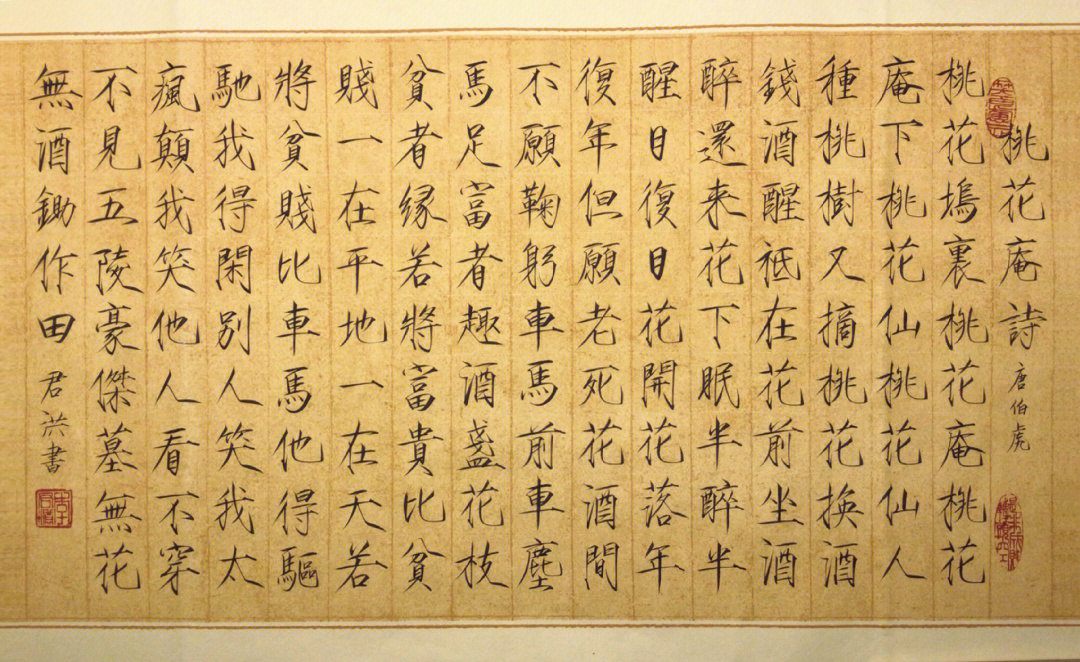 桃花庵詩 唐伯虎
桃花塢裏桃花庵桃花
庵下桃花仙桃花仙人
種桃樹又摘桃花換酒
錢酒醒祗在花前坐酒
醉還来花下眠半醉半
醒日復日花開花落年
復年但願老死花酒間
不願鞠躬車馬前車塵
馬足富者趣酒盞花枝
貧者緣若將富貴比貧
賤一在平地一在天若
將貧賤比車馬他得驅
馳我得閑別人笑我太
瘋顛我笑他人看不穿
不見五陵豪傑墓無花
無酒鋤作田 君洪書